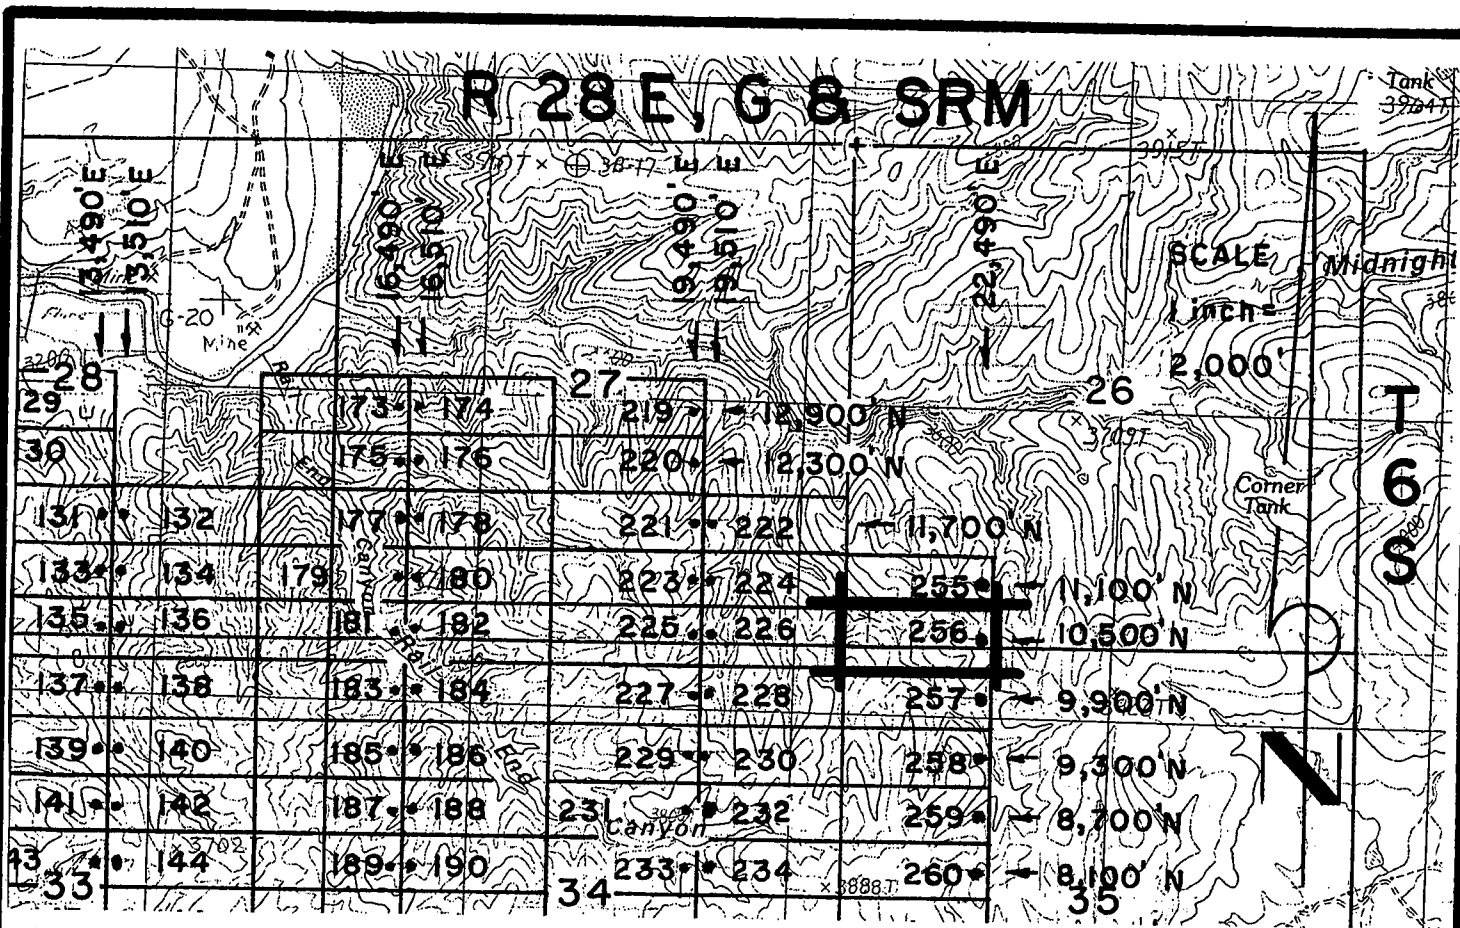 R 28 E, G & SRM
Tank
3964T
3915T
3,490' E
3,510' E
16,490' E
16,510' E
38-17
19,490' E
19,510' E
22,490' E
SCALE
1 inch=
2,000'
Midnight
G-20
Mine
Rd
28
27
26
T
6
S
29
173 174
219 12,900' N
30
175 176
220 12,300' N
3709T
End
Corner
Tank
131 132
177 178
221 222
11,700' N
Canyon
133 134
179 180
223 224
255 11,100' N
135 136
181 182
225 226
256 10,500' N
Rail
137 138
183 184
227 228
257 9,900' N
139 140
185 186
End
229 230
258 9,300' N
N
141 142
187 188
231 232
Canyon
259 8,700' N
43 144
3702
189 190
233 234
3888T
260 8,100' N
33
34
35